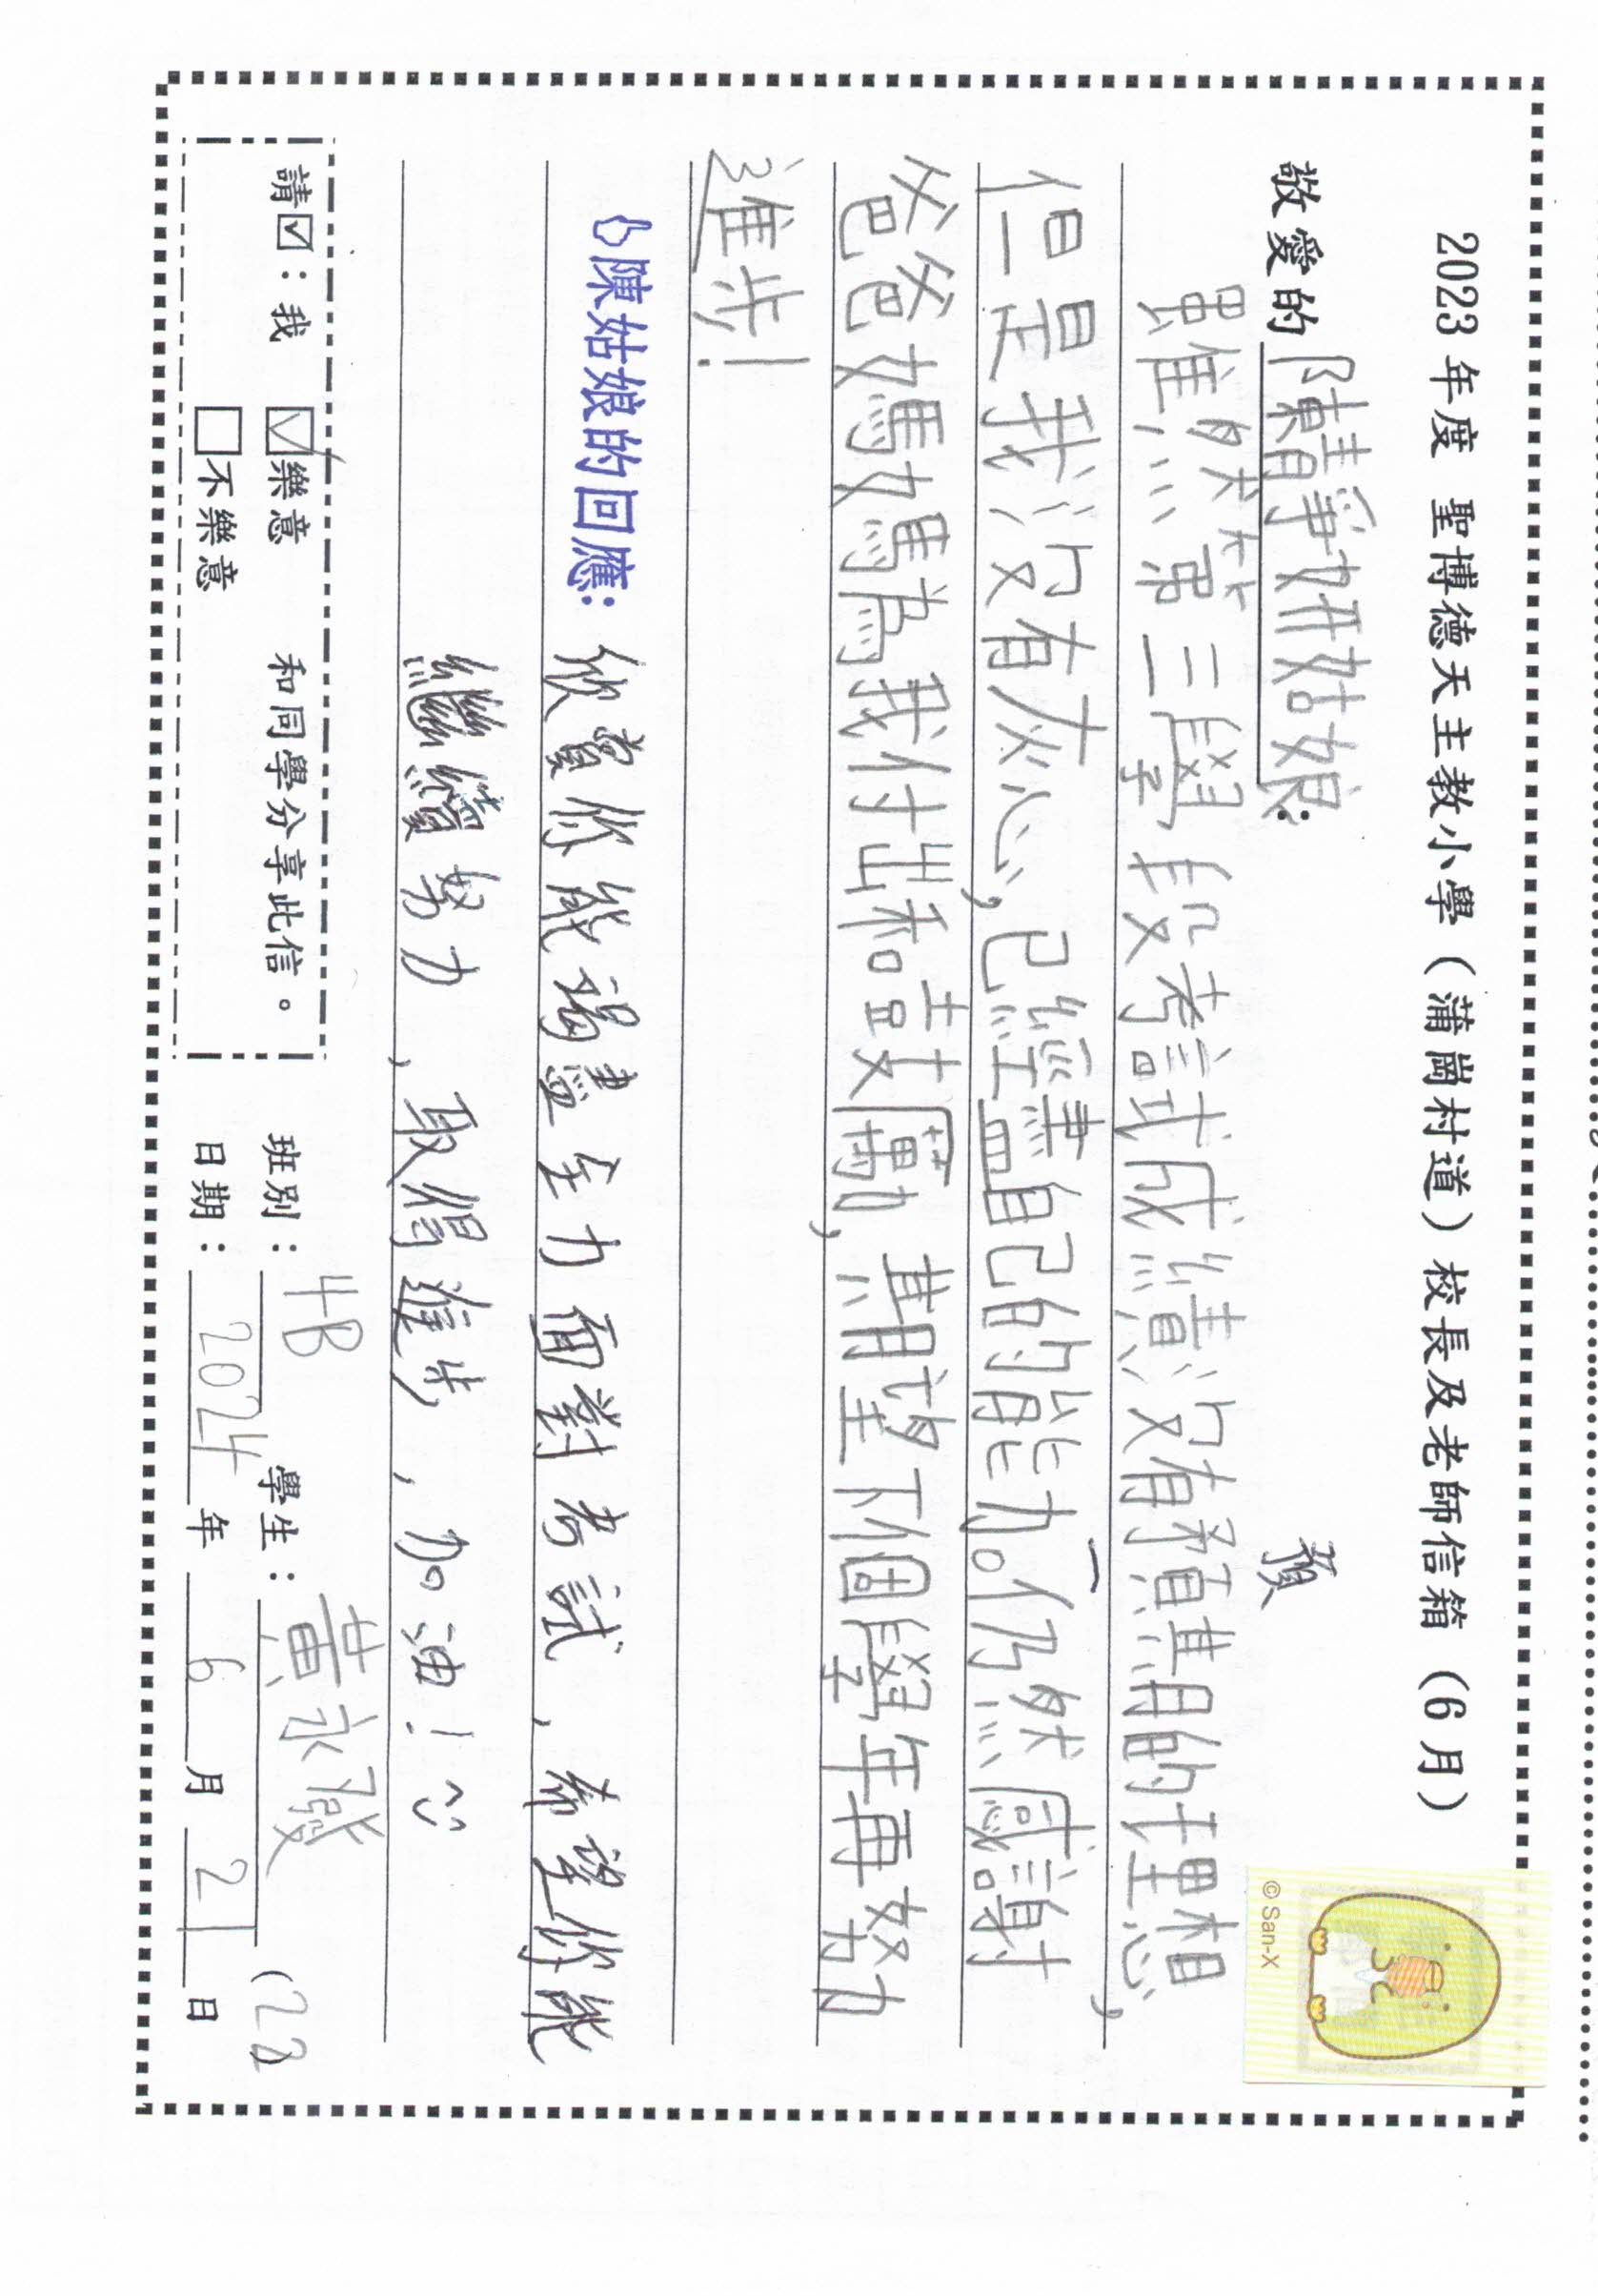 2023 年度 聖博德天主教小學（蒲崗村道）校長及老師信箱（6月）
敬愛的陳靜妍姑娘：
預
雖然第三學段考試成績沒有預期的理想，
但是我沒有灰心，已經盡自己的能力。仍然感謝
爸爸媽媽為我付出和鼓勵，期望下個學年再努力
進步！
陳姑娘的回應：欣賞你能竭盡全力面對考試，希望你能
繼續努力，取得進步，加油！
請☑：我 ☑樂意 和同學分享此信。 班別：4B 學生：黃永發 (22)
□不樂意 日期：2024年6月21日
© San-X